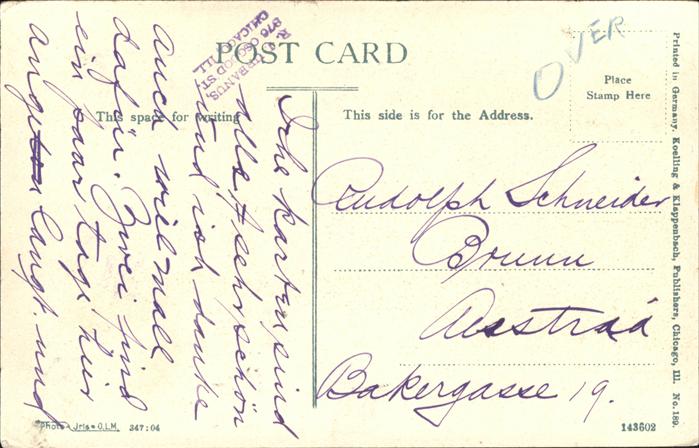 POST CARD
OVER
Place
Stamp Here
This space for writing
This side is for the Address.
CHICAGO, ILL.
Ihre Karten sind
alle sehr schön
und ich danke
auch viel mall
dafür. Zwei sind
ein paar tage hier
angelangt. und
Rudolph Schneider
Brunn
Bakergasse 19.
Printed in Germany. Koelling & Klappenbach, Publishers, Chicago, Ill. No. 189.
Photo - Iris - O.L.M. 347:04
143602